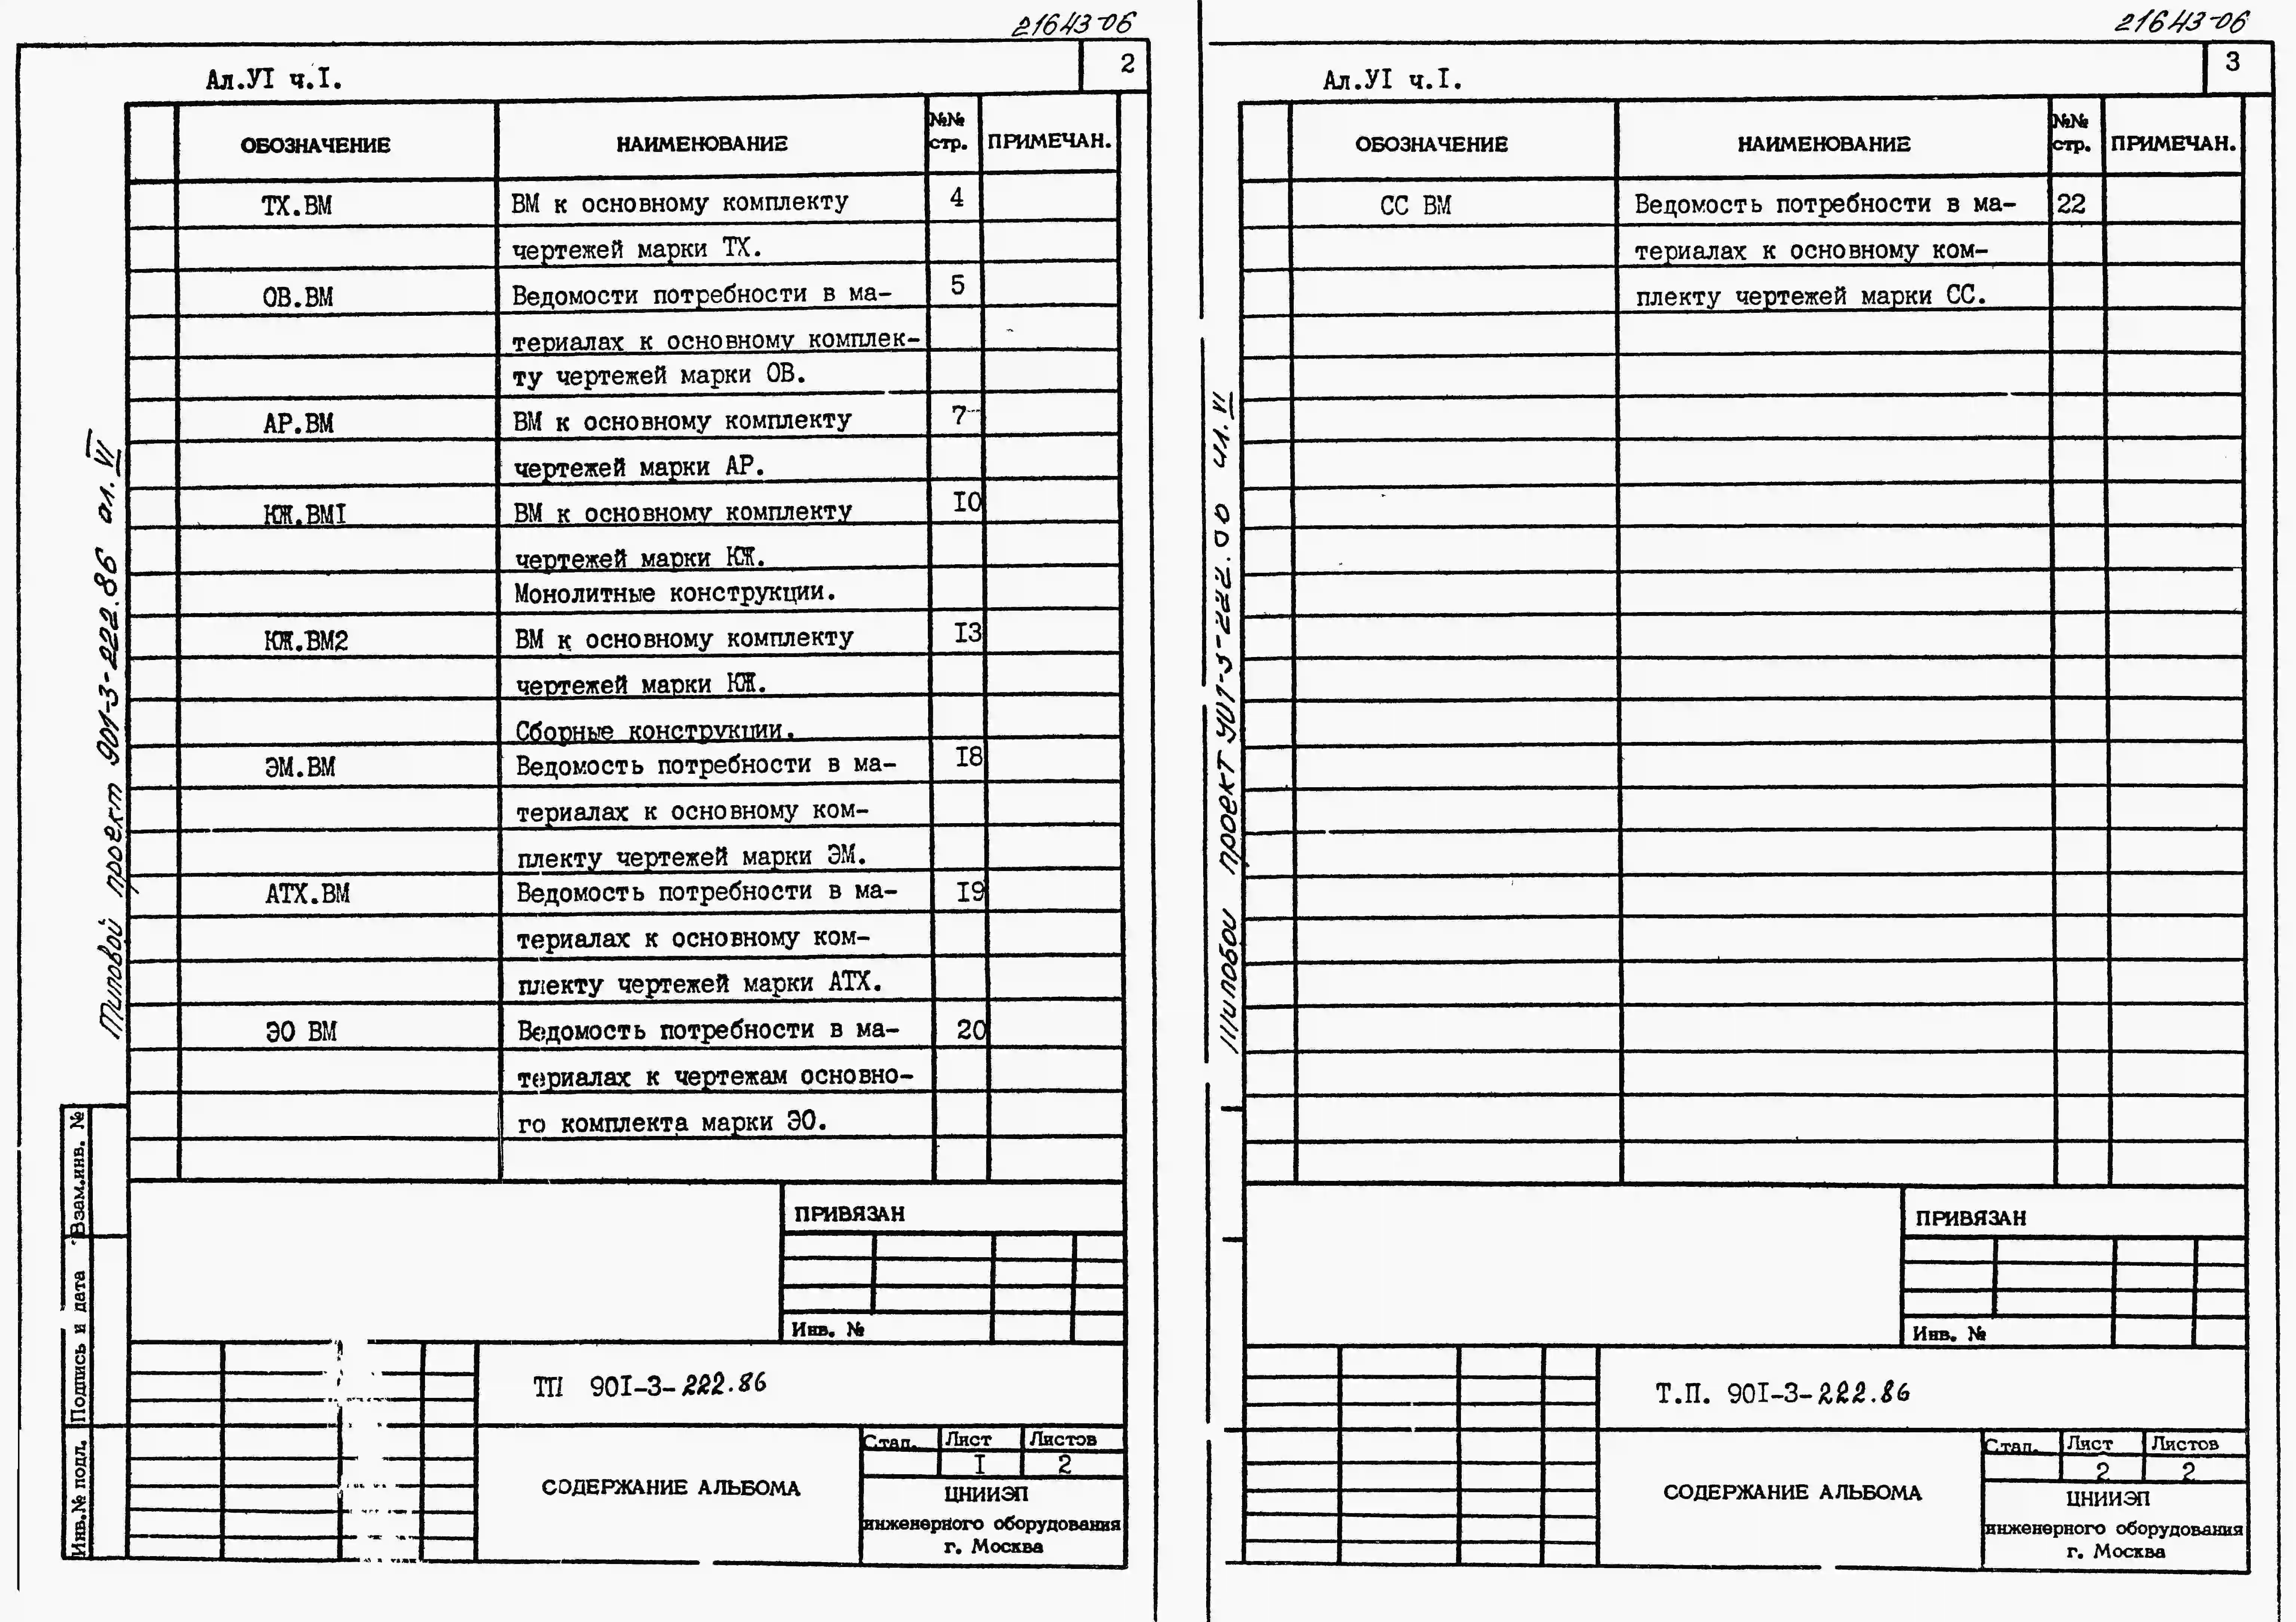 21643-06
2
Ал.УІ ч.І.
ОБОЗНАЧЕНИЕ НАИМЕНОВАНИЕ №№ стр. ПРИМЕЧАН.
ТХ.ВМ ВМ к основному комплекту 4
чертежей марки ТХ.
ОВ.ВМ Ведомости потребности в ма- 5
териалах к основному комплек-
ту чертежей марки ОВ.
АР.ВМ ВМ к основному комплекту 7
чертежей марки АР.
КЖ.ВМІ ВМ к основному комплекту І0
чертежей марки КЖ.
Монолитные конструкции.
КЖ.ВМ2 ВМ к основному комплекту І3
чертежей марки КЖ.
Сборные конструкции.
ЭМ.ВМ Ведомость потребности в ма- І8
териалах к основному ком-
плекту чертежей марки ЭМ.
АТХ.ВМ Ведомость потребности в ма- І9
териалах к основному ком-
плекту чертежей марки АТХ.
ЭО ВМ Ведомость потребности в ма- 20
териалах к чертежам основно-
го комплекта марки ЭО.
Типовой проект 901-3-222.86 ал. VI
Взам.инв. №
Подпись и дата
Инв.№ подл.
ПРИВЯЗАН
Инв. №
ТП 90І-3-222.86
СОДЕРЖАНИЕ АЛЬБОМА
Стад. Лист Листов
І 2
ЦНИИЭП
инженерного оборудования
г. Москва
21643-06
3
Ал.УІ ч.І.
ОБОЗНАЧЕНИЕ НАИМЕНОВАНИЕ №№ стр. ПРИМЕЧАН.
СС ВМ Ведомость потребности в ма- 22
териалах к основному ком-
плекту чертежей марки СС.
Типовой проект 901-3-222.86 ал. VI
ПРИВЯЗАН
Инв. №
Т.П. 90І-3-222.86
СОДЕРЖАНИЕ АЛЬБОМА
Стад. Лист Листов
2 2
ЦНИИЭП
инженерного оборудования
г. Москва